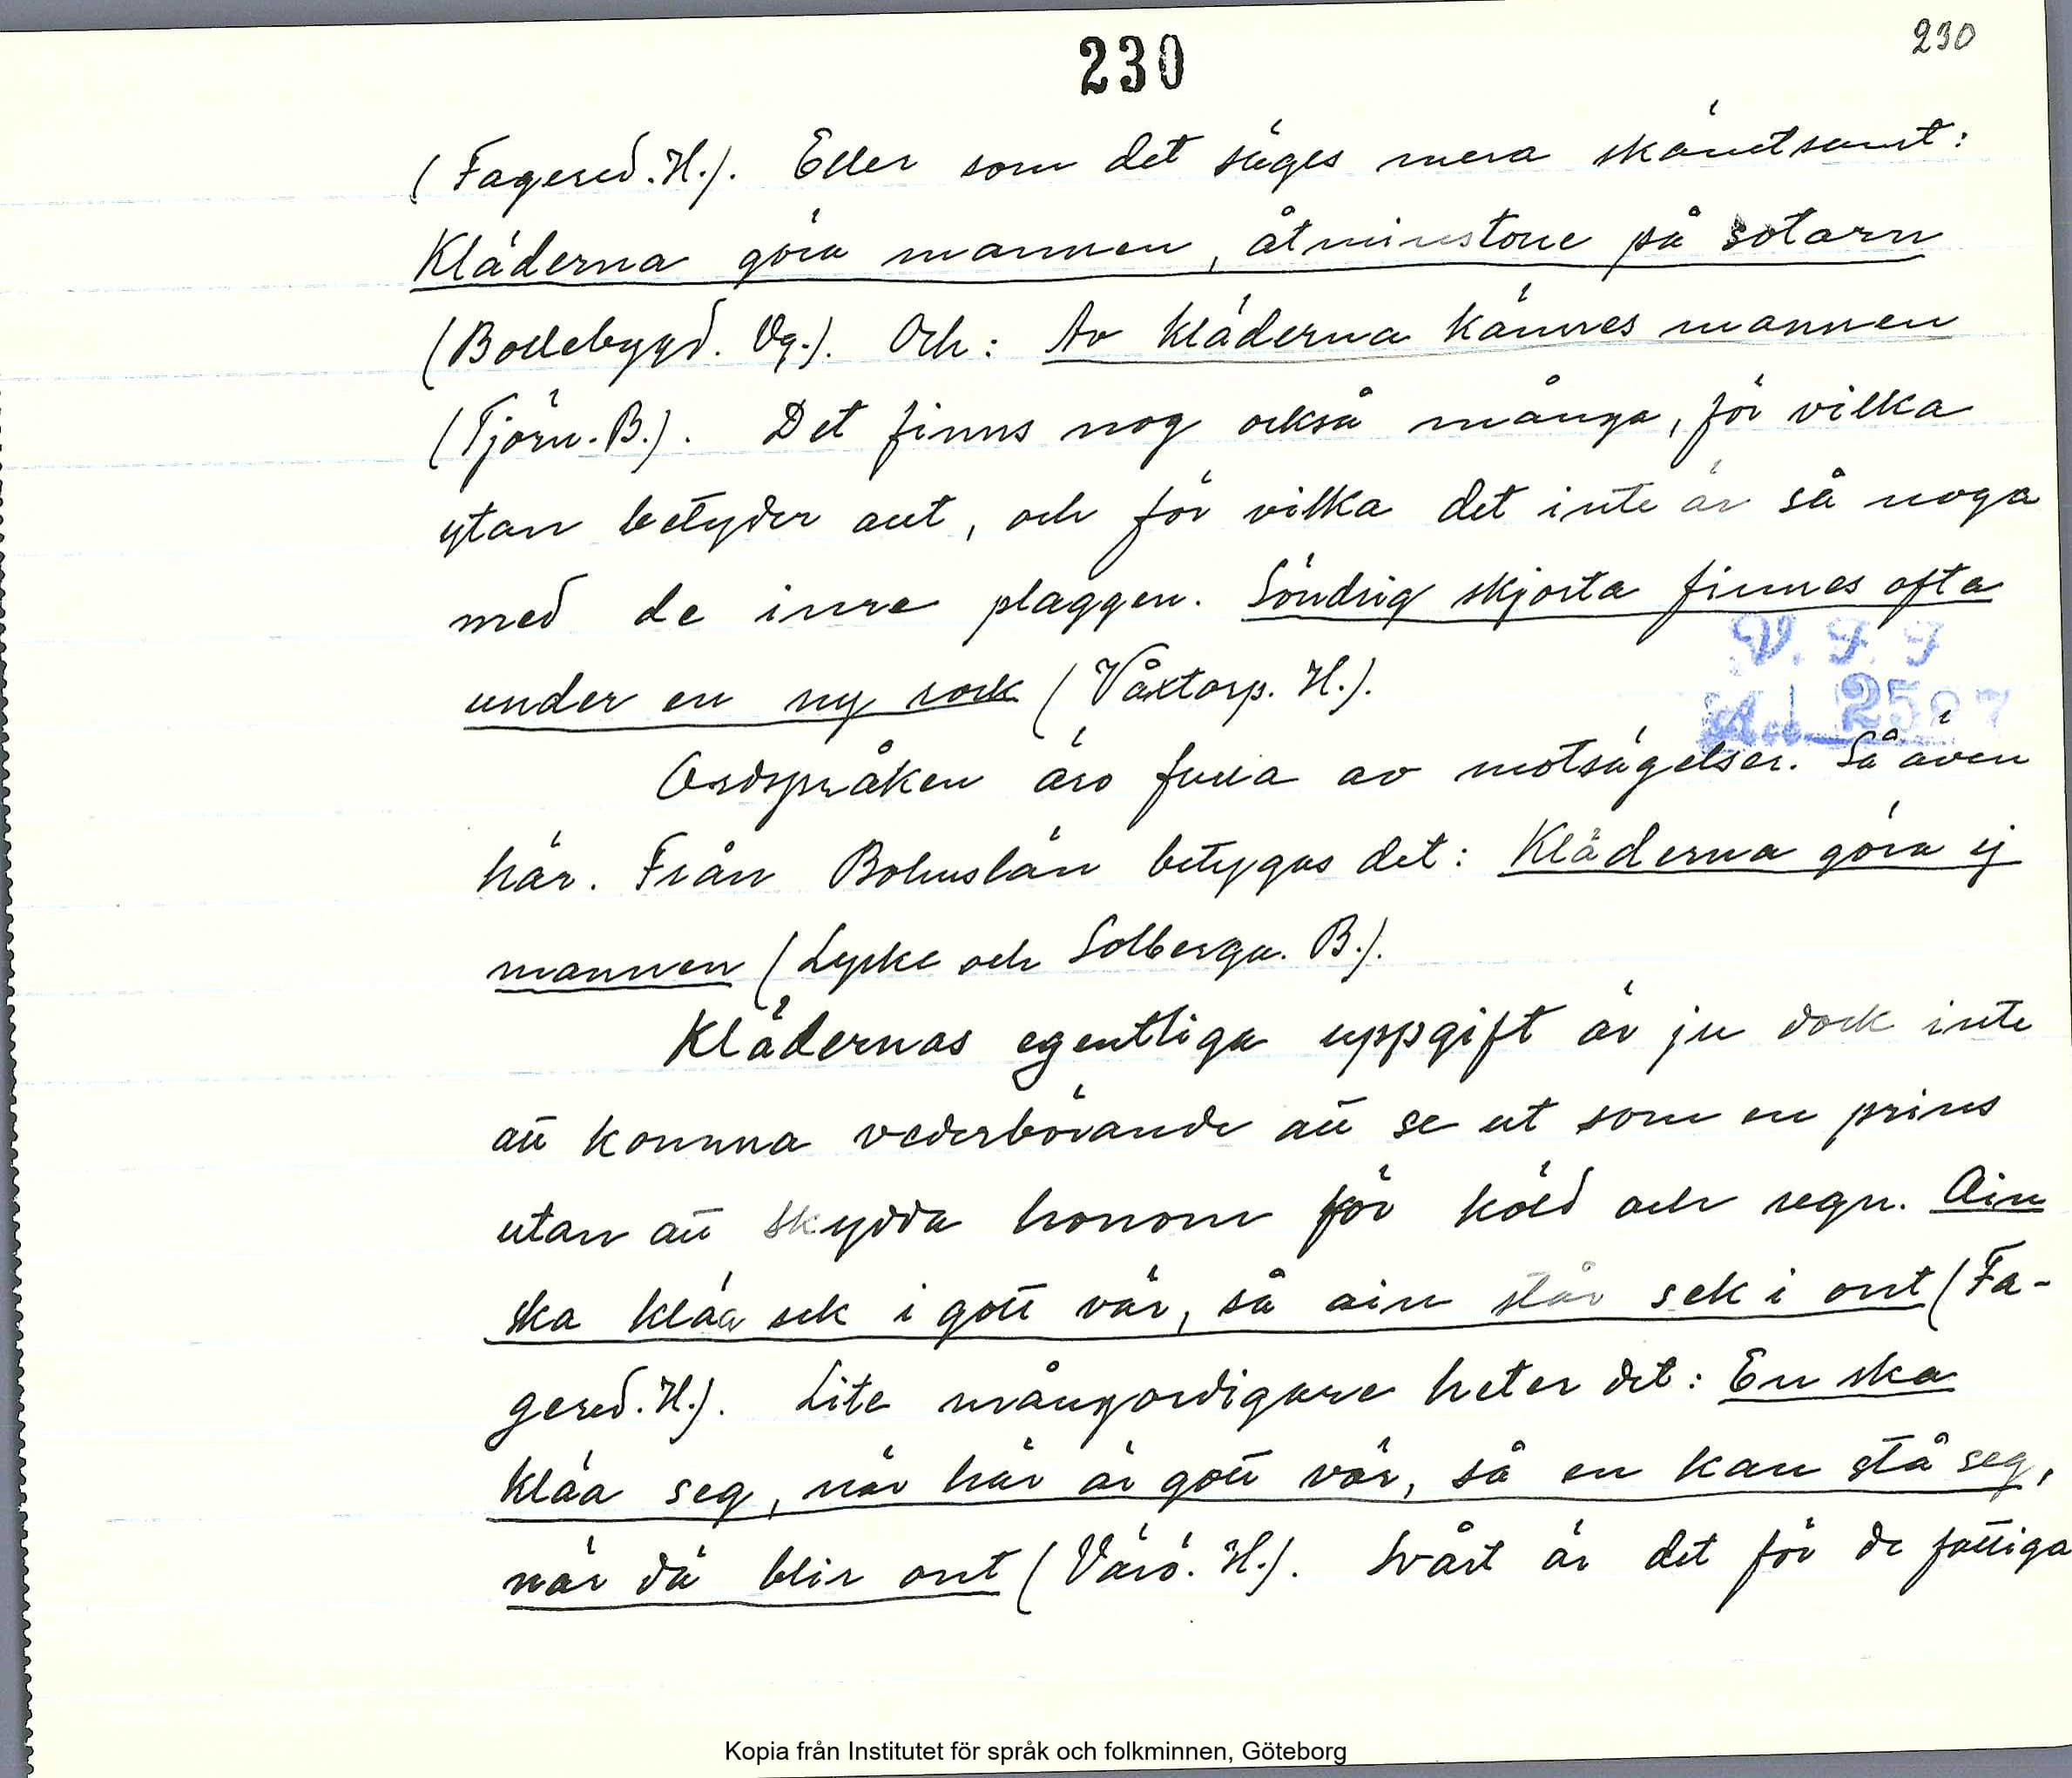 230
230
(Fagered. H.). Eller som det säges mera skämtsamt:
Kläderna göra mannen, åtminstone på sotarn
(Bollebygd. Vg.). Och: Av kläderna kännes mannen
(Tjörn. B.). Det finns nog också många, för vilka
ytan betyder allt, och för vilka det inte är så noga
med de inre plaggen. Söndrig skjorta finnes ofta
under en ny rock (Våxtorp. H.).
V. F. F
Ordspråken äro fulla av motsägelser. Så även
här. Från Bohuslän betygas det: Kläderna göra ej
mannen (Lycke och Solberga. B.).
Klädernas egentliga uppgift är ju dock inte
att komma vederbörande att se ut som en prins
utan att skydda honom för köld och regn. Ain
ska kläa sek i gott vär, så ain står sek i ont (Fa-
gered. H.). Lite mångordigare heter det: En ska
kläa seg, när här är gott vär, så en kan stå seg,
när dä blir ont (Värö. H.). Svårt är det för de fattiga
Kopia från Institutet för språk och folkminnen, Göteborg